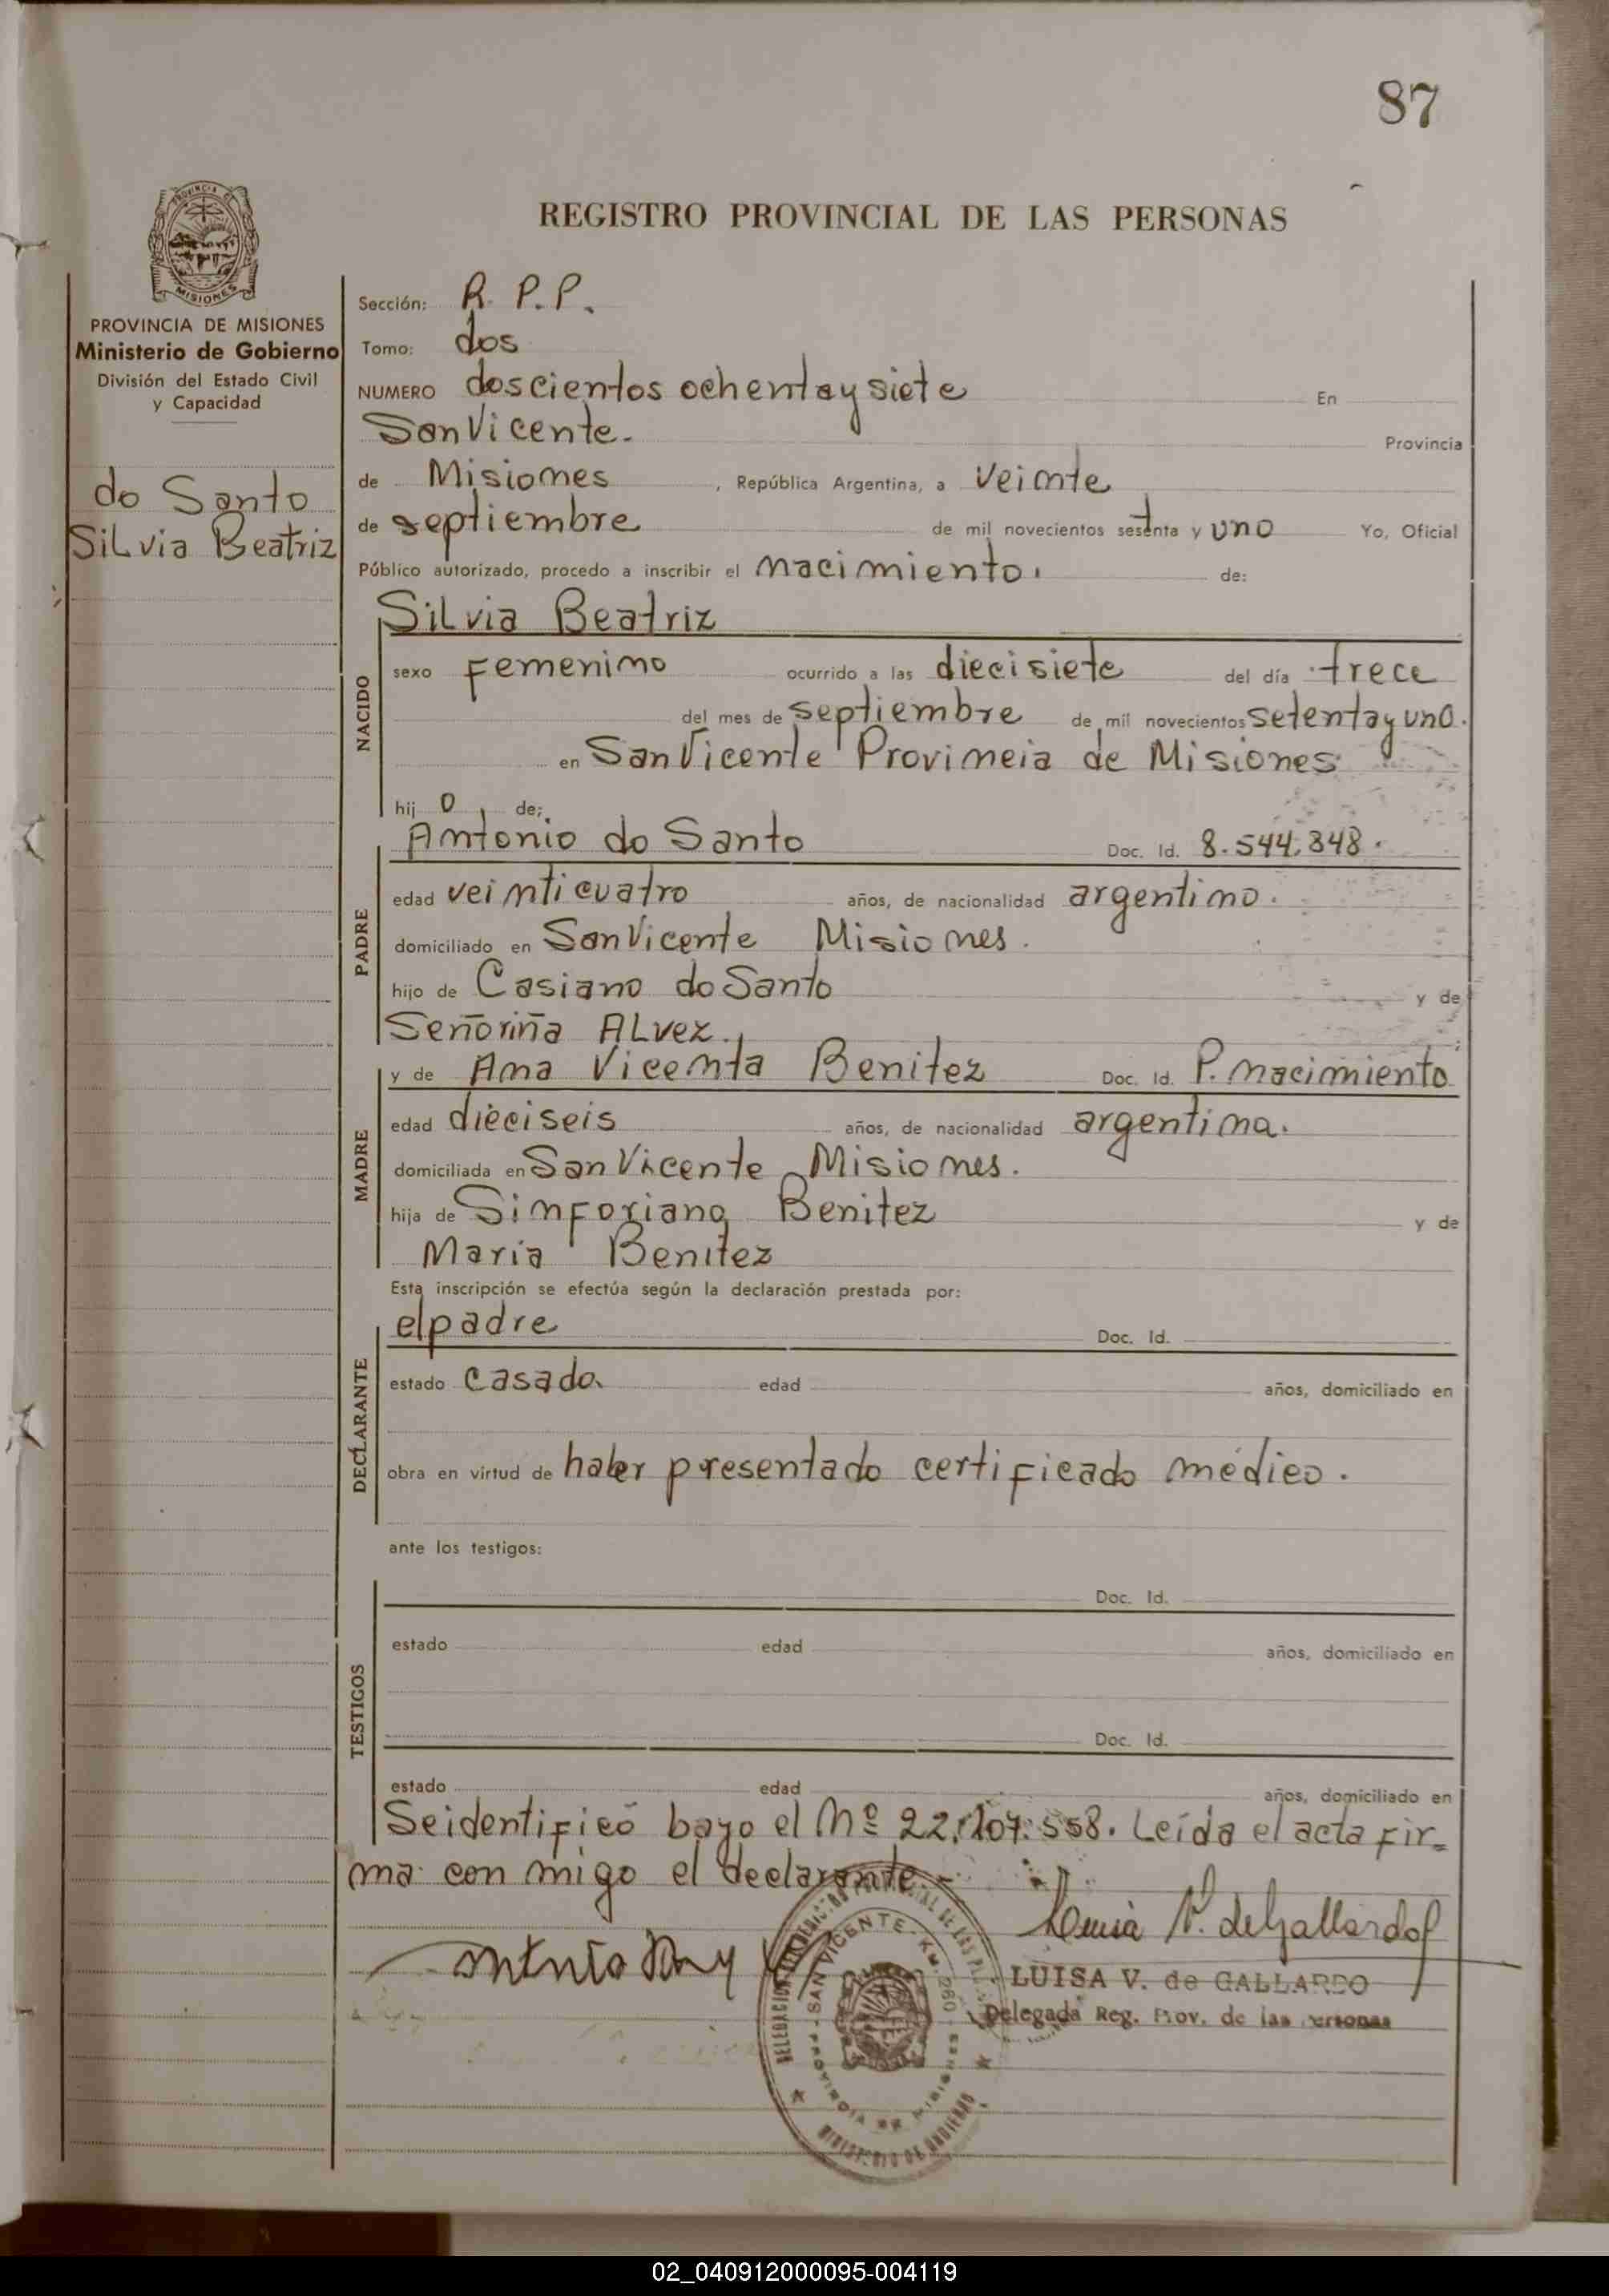 87
REGISTRO PROVINCIAL DE LAS PERSONAS
PROVINCIA DE MISIONES
Ministerio de Gobierno
División del Estado Civil
y Capacidad
do Santo
Silvia Beatriz
Sección: R. P. P.
Tomo: dos
NUMERO doscientos ochentay siete En
San Vicente. Provincia
de Misiones, República Argentina, a veinte
de septiembre de mil novecientos setenta y uno Yo, Oficial
Público autorizado, procedo a inscribir el nacimiento. de:
Silvia Beatriz
NACIDO
sexo Femenino ocurrido a las diecisiete del día trece
del mes de septiembre de mil novecientos setentay uno.
en San Vicente Provincia de Misiones
hij o de:
Antonio do Santo Doc. Id. 8.544.348.
PADRE
edad veinticuatro años, de nacionalidad argentino.
domiciliado en San Vicente Misiones.
hijo de Casiano do Santo y de
Señoriña Alvez.
y de Ana Vicenta Benitez Doc. Id. P. nacimiento
MADRE
edad dieciseis años, de nacionalidad argentina.
domiciliada en San Vicente Misiones.
hija de Sinforiano Benitez y de
Maria Benitez
Esta inscripción se efectúa según la declaración prestada por:
el padre Doc. Id.
DECLARANTE
estado casado. edad años, domiciliado en
obra en virtud de haber presentado certificado médico.
ante los testigos:
Doc. Id.
TESTIGOS
estado edad años, domiciliado en
Doc. Id.
estado edad años, domiciliado en
Seidentificó bajo el Nº 22.207.558. Leída el acta fir=
ma con migo el declarante.-
Luisa V. de Gallardo
LUISA V. de GALLARDO
Delegada Reg. Prov. de las Personas
SAN VICENTE - Km. 260
PROVINCIA DE MISIONES
MINISTERIO DE GOBIERNO
02_040912000095-004119